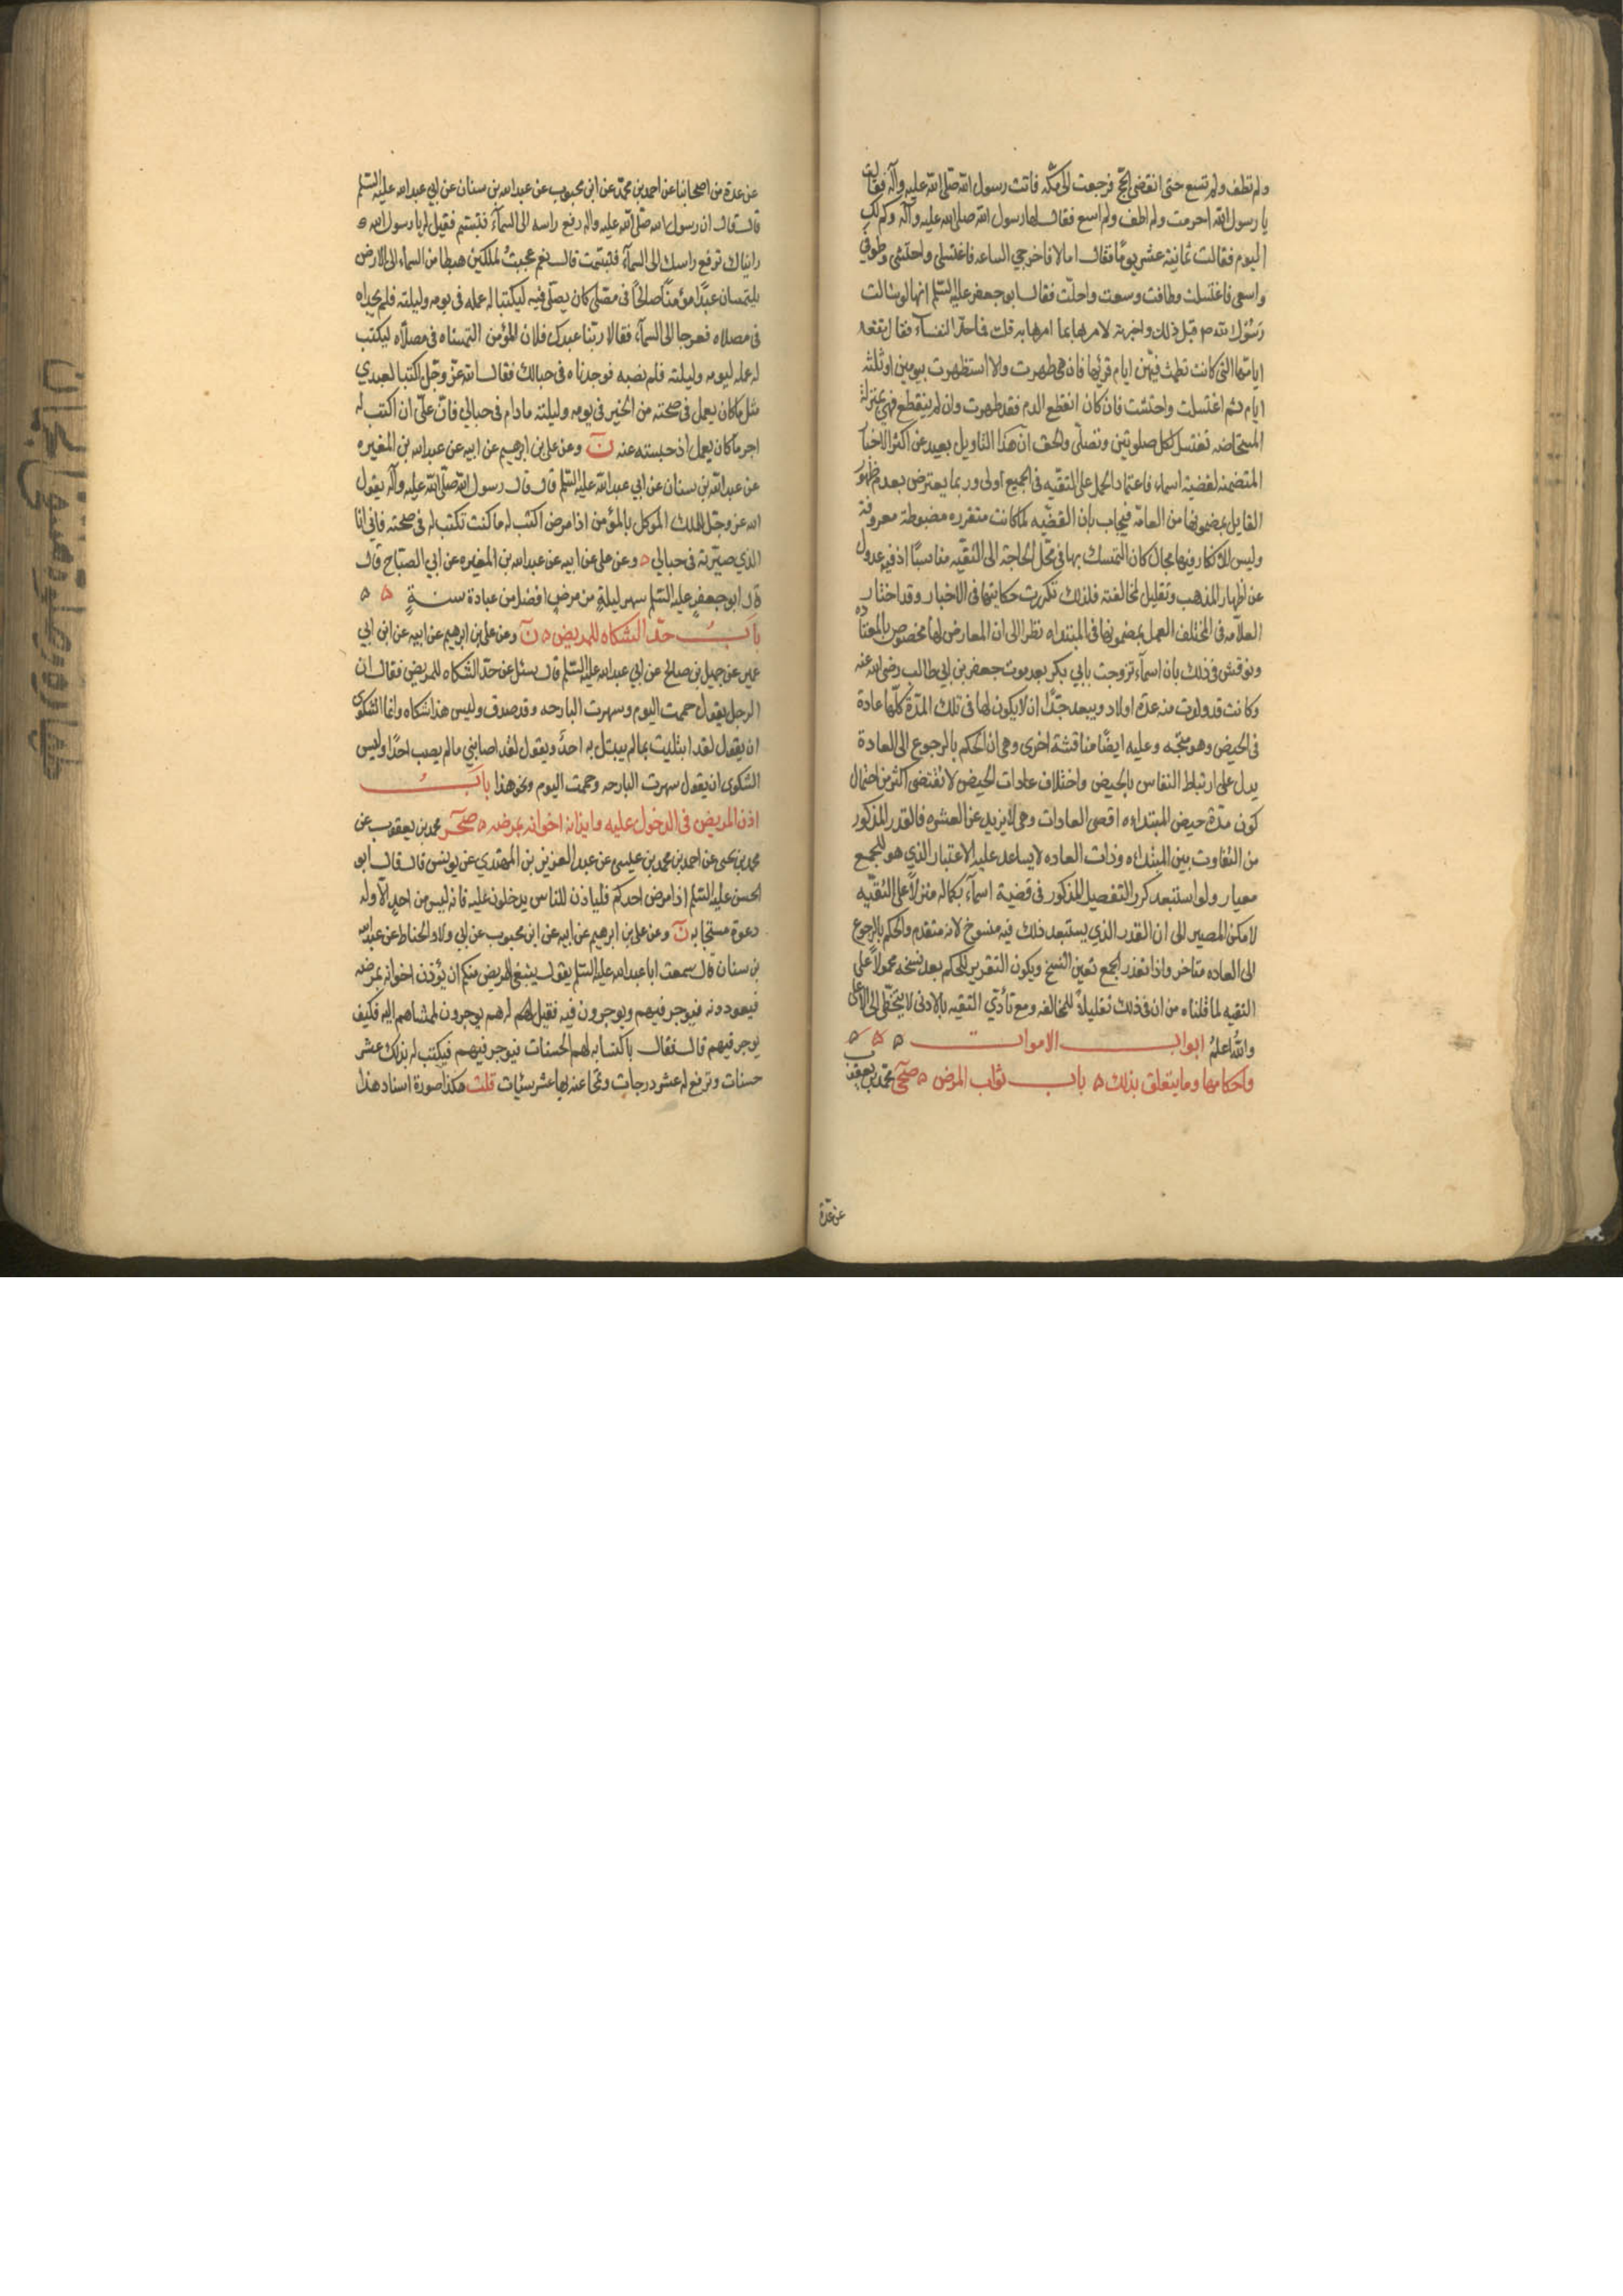 ولم تطف ولم تسع حتى انقضى الحج فرجعت الى مكه فاتت رسول الله صلى الله عليه وآله فقالت
يا رسول الله احرمت ولم اطف ولم اسع فقال لها رسول الله صلى الله عليه وآله وكم لك
اليوم فقالت ثمانية عشر يومًا فقال اما لا فاخرجي الساعه فاغتسلي واحتشي وطوفي
واسعي فاغتسلت وطافت وسعت واحلّت فقال ابو جعفر عليه السلم انها لو سالت
رسول الله ص قبل ذلك واخبرته لامرها بما امرها به قلت فما حدّ النفساء فقال تقعد
ايامها التي كانت تطمث فيهن ايام قرئها فان هي طهرت والا استظهرت بيومين او ثلثة
ايام ثم اغتسلت واحتشت فان كان انقطع الدم فقد طهرت وان لم ينقطع فهي بمنزلة
المستحاضه تغتسل لكل صلوتين وتصلّي والحق ان هذا التاويل بعيد عن اكثر الاخبار
المتضمنه لقضية اسماء فاعتماد الحمل على التقيه في الجميع اولى وربما يعترض بعدم ظهور
القايل بمضمونها من العامّه فيجاب بان القضيّه لما كانت متقرره مضبوطة معروفة
وليس للانكار فيها مجال كان التمسك بها في محل الحاجة الى التقيّه مناسبًا اذ فيه عدول
عن اظهار المذهب وتقليل لمخالفته فلذلك تكررت حكايتها في الاخبار وقد اختار
العلامه في المختلف العمل بمضمونها في المبتداه نظرا الى ان المعارض لها مخصوص بالمعتاده
ونوقش في ذلك بان اسماء تزوجت بابي بكر بعد موت جعفر بن ابي طالب رضي الله عنه
وكانت قد ولدت منه عدة اولاد ويبعد جدًّا ان لا يكون لها في تلك المدّة كلّها عادة
في الحيض وهو متجه وعليه ايضًا مناقشة اخرى وهي ان الحكم بالرجوع الى العادة
يدل على ارتباط النفاس بالحيض واختلاف عادات الحيض لا تقتضى اكثر من احتمال
كون مدّة حيض المبتداءه اقصى العادات وهي لا يزيد عن العشره فالقدر المذكور
من التفاوت بين المبتداءه وذات العاده لا يساعد عليه الاعتبار الذي هو للجمع
معيار ولو استبعد كرر التفصيل المذكور في قضية اسماء بكماله منزلاً على التقيّه
لامكن المصير الى ان القدر الذي يستبعد ذلك فيه منسوخ لانه متقدم والحكم بالرجوع
الى العاده متاخر واذا تعذر الجمع تعين النسخ ويكون التقرير للحكم بعد نسخه محمولاً على
التقيه لما قلناه من ان في ذلك تقليلاً للمخالفه ومع تأدّي التقيه بالادنى لا يتخطّى الى الاعلى
والله اعلم ابواب الاموات ه ه ه
واحكامها وما يتعلق بذلك ه باب ثواب المرض ه صحى محمد بن يعقوب
عن عدة
عن عدة من اصحابنا عن احمد بن محمّد عن ابن محبوب عن عبد الله بن سنان عن ابي عبد الله عليه السلم
قال قال ان رسول الله صلى الله عليه واله رفع راسه الى السماء فتبسّم فقيل له يا رسول الله ه
رايناك ترفع راسك الى السماء فتبسّمت قال نعم عجبتُ لملكين هبطا من السماء الى الارض
يلتمسان عبدًا مؤمنًا صالحًا في مصلّى كان يصلّي فيه ليكتبا له عمله في يومه وليلته فلم يجداه
في مصلاه فعرجا الى السماء فقالا ربّنا عبدك فلان المؤمن التمسناه في مصلاّه ليكتب
له عمله ليومه وليلته فلم نصبه فوجدناه في حبالك فقال الله عزّ وجل اكتبا لعبدي
مثل ما كان يعمل في صحته من الخير في يومه وليلته ما دام في حبالي فان علىّ ان اكتب له
اجر ما كان يعمل اذ حبسته عنه ن وعن علي بن ابرهيم عن ابيه عن عبد الله بن المغيره
عن عبد الله بن سنان عن ابي عبد الله عليه السلم قال قال رسول الله صلى الله عليه وآله يقول
الله عز وجل للملك الموكل بالمؤمن اذا مرض اكتب له ما كنت تكتب له في صحته فاني انا
الذي صيّرته في حبالي ه وعن علي عن ابيه عن عبد الله بن المغيره عن ابي الصباح قال
قال ابو جعفر عليه السلم سهر ليلةٍ من مرض افضل من عبادة سنةٍ ه ه
بابُ حدّ الشكاه للمريض ه ن وعن علي بن ابرهيم عن ابيه عن ابن ابي
عمير عن جميل بن صالح عن ابي عبد الله عليه السلم قال سئل عن حدّ الشكاه للمريض فقال ان
الرجل يقول حممت اليوم وسهرت البارحه وقد صدق وليس هذا شكاه وانما الشكوى
ان يقول لقد ابتليت بما لم يبتل به احدٌ ويقول لقد اصابني ما لم يصب احدًا وليس
الشكوى ان يقول سهرت البارحه وحممت اليوم ونحو هذا بابُ
اذن المريض في الدخول عليه وايذانه اخوانه بمرضه ه صحر محمد بن يعقوب عن
محمد بن يحيى عن احمد بن محمد بن عيسى عن عبد العزيز بن المهتدي عن يونس قال قال ابو
الحسن عليه السلم اذا مرض احدكم فلياذن للناس يدخلون عليه فانه ليس من احدٍ الا وله
دعوة مستجابه ن وعن علي بن ابرهيم عن ابيه عن ابن محبوب عن ابي ولاد الحناط عن عبد الله
بن سنان قال سمعت ابا عبد الله عليه السلم يقول ينبغي للمريض منكم ان يؤذن اخوانه بمرضه
فيعودونه فيوجر فيهم ويوجرون فيه فقيل له هم يوجرون لممشاهم اليه فكيف
يوجر فيهم قال فقال باكتسابه لهم الحسنات فيوجر فيهم فيكتب له بذلك عشر
حسنات وترفع له عشر درجات وتمحا عنه بها عشر سيئات قلت هكذا صورة اسناد هذا